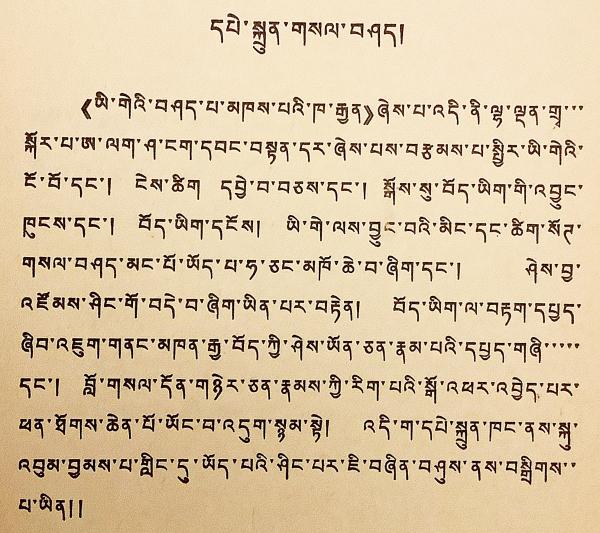 དཔེ་སྐྲུན་གསལ་བཤད།
《ཡི་གེའི་བཤད་པ་མཁས་པའི་ཁ་རྒྱན》ཞེས་པ་འདི་ནི་ལྷ་ལྡན་གྲྭ་་་
སྐོར་པ་ཨ་ལག་ཤ་ངག་དབང་བསྟན་དར་ཞེས་པས་བརྩམས་པ་སྤྱིར་ཡི་གེའི་
ངོ་བོ་དང་། ངེས་ཚིག དབྱེ་བ་བཅས་དང་། སྒོས་སུ་བོད་ཡིག་གི་འབྱུང་
ཁུངས་དང་། བོད་ཡིག་དངོས། ཡི་གེ་ལས་བྱུང་བའི་མིང་དང་ཚིག་སོཊ་
གསལ་བཤད་མང་པོ་ཡོད་པ་ཧ་ཅང་མཁོ་ཆེ་བ་ཞིག་དང་། ཤེས་བྱ་
འཛོམས་ཤིང་གོ་བདེ་བ་ཞིག་ཡིན་པར་བརྟེན། བོད་ཡིག་ལ་བརྟག་དཔྱད་
ཞིབ་འཇུག་གནང་མཁན་རྒྱ་བོད་ཀྱི་ཤེས་ཡོན་ཅན་རྣམ་པའི་དཔྱད་གཞི་་་་་
དང་། བློ་གསལ་དོན་གཉེར་ཅན་རྣམས་ཀྱི་རིག་པའི་སྒོ་འཕར་འབྱེད་པར་
ཕན་ཐོགས་ཆེན་པོ་ཡོང་བ་འདུག་སྙམ་སྟེ། འདི་ག་དཔེ་སྐྲུན་ཁང་ནས་སྐུ་
འབུམ་བྱམས་པ་གླིང་དུ་ཡོད་པའི་ཤིང་པར་ཇི་བཞིན་བཤུས་ནས་བསྒྲིགས་་
པ་ཡིན།།